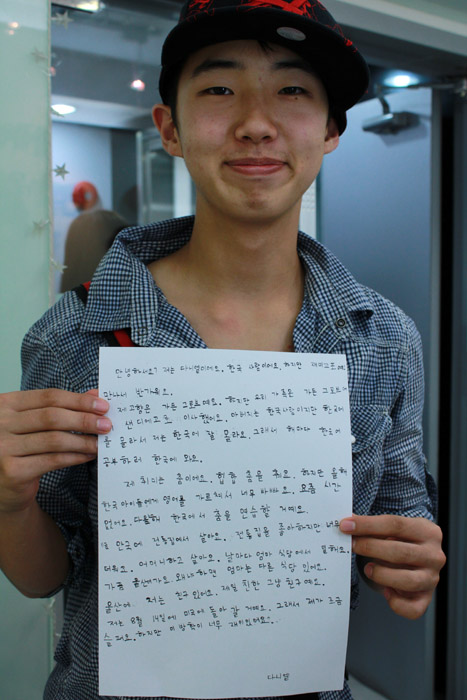 안녕하세요? 저는 다니엘이에요. 한국 사람이에요. 하지만
만나서 반가워요.
제 고향은 하지만 우리 가족은
샌디에고로 이사했어요. 아버지는 한국사람이지만 한국어
를 몰라서 저는 한국어 잘 몰라요. 그래서 해마다 한국어
공부하러 한국에 와요.
제 취미는 춤이에요. 힙합 춤을 춰요. 하지만 올해
한국 아이들에게 영어를 가르쳐서 너무 바빠요. 요즘 시간
없어요. 다음해 한국에서 춤을 연습할 거예요.
안국에 전통집에서 살아요. 전통집을 좋아하지만 너무
더워요. 어머니하고 살아요. 날마다 엄마 식당에서 일해요.
가끔 울산에가요 왜냐하면 엄마는 다른 식당 있어요.
울산에 저는 친구 있어요. 제일 친한 그냥 친구예요.
저는 8월 14일에 미국에 돌아 갈 거예요. 그래서 제가 조금
슬퍼요. 하지만 이 방학이 너무 재미있어요.
다니엘